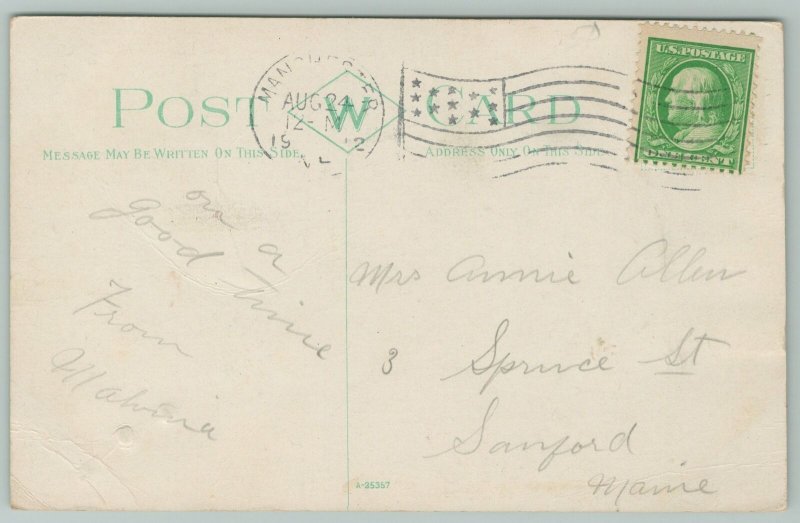 POST CARD
W
MESSAGE MAY BE WRITTEN ON THIS SIDE
ADDRESS ONLY ON THIS SIDE
MANCHESTER
AUG 24
12-M
19 12
U.S. POSTAGE
ONE CENT
on a
good time
From
Malvina
Mrs Annie Allen
3 Spruce St
Sanford
Maine
A-35357